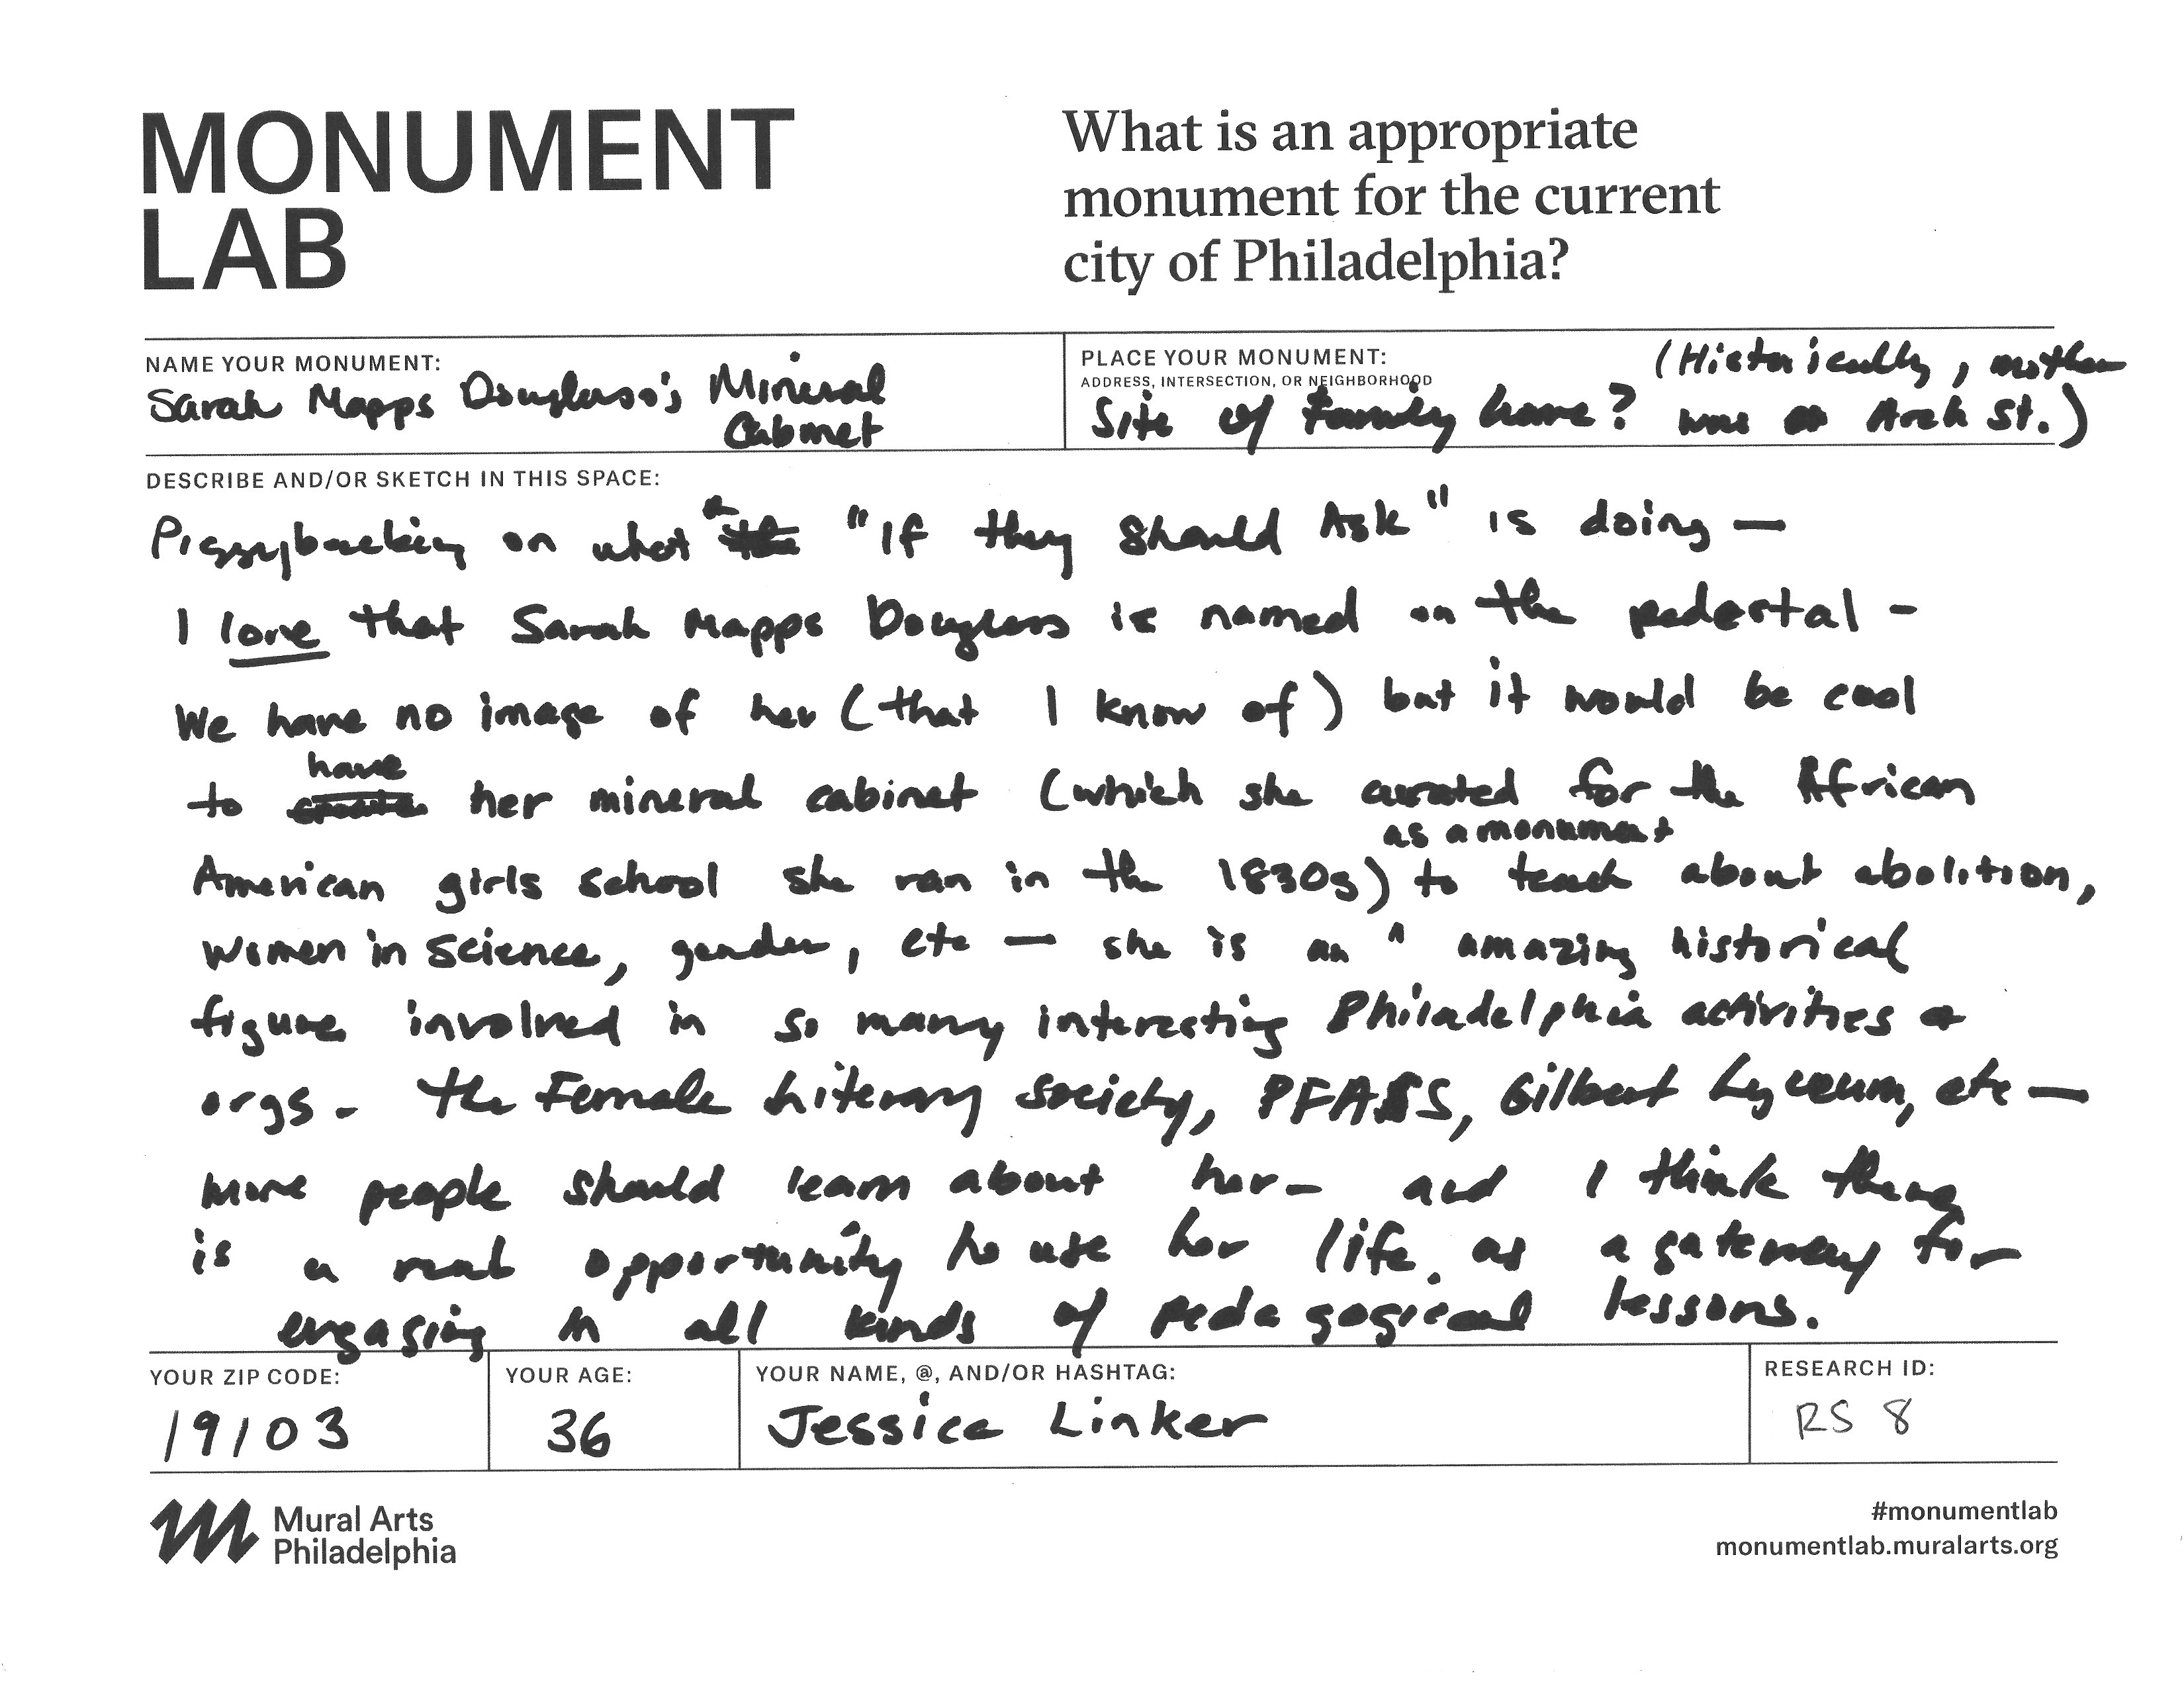 MONUMENT
LAB
What is an appropriate
monument for the current
city of Philadelphia?
NAME YOUR MONUMENT:
Sarah Mapps Douglass's Mineral
Cabinet
PLACE YOUR MONUMENT:
ADDRESS, INTERSECTION, OR NEIGHBORHOOD
(Historically, mother
Site of family home? was on Arch St.)
DESCRIBE AND/OR SKETCH IN THIS SPACE:
Piggybacking on what "If they Should Ask" is doing —
I love that Sarah Mapps Douglass is named on the pedestal -
We have no image of her (that I know of) but it would be cool
have
to her mineral cabinet (which she curated for the African
as a monument
American girls school she ran in the 1830s) to teach about abolition,
women in science, gender, etc — she is an amazing historical
figure involved in so many interesting Philadelphia activities +
orgs - the Female Literary Society, PFASS, Gilbert Lyceum, etc —
more people should learn about her - and I think there
is a real opportunity to use her life as a gateway for
engaging in all kinds of pedagogical lessons.
YOUR ZIP CODE:
19103
YOUR AGE:
36
YOUR NAME, @, AND/OR HASHTAG:
Jessica Linker
RESEARCH ID:
RS 8
Mural Arts
Philadelphia
#monumentlab
monumentlab.muralarts.org